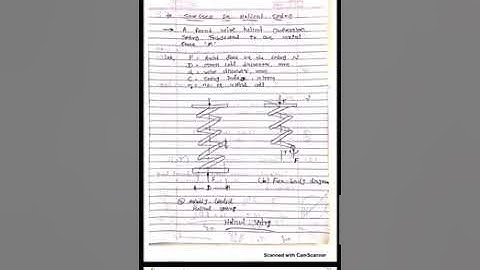 Stresses in Helical Spring
→ A round wire helical compression
Spring Subjected to an axial
force "F"
F = Axial force on the spring N
D = Mean coil diameter mm
d = wire diameter mm
C = Spring Index
= no. of active coil
F
F
F
F
D
(b) Free body diagram
(a) Axially loaded
Helical spring
Helical Spring
Scanned with CamScanner